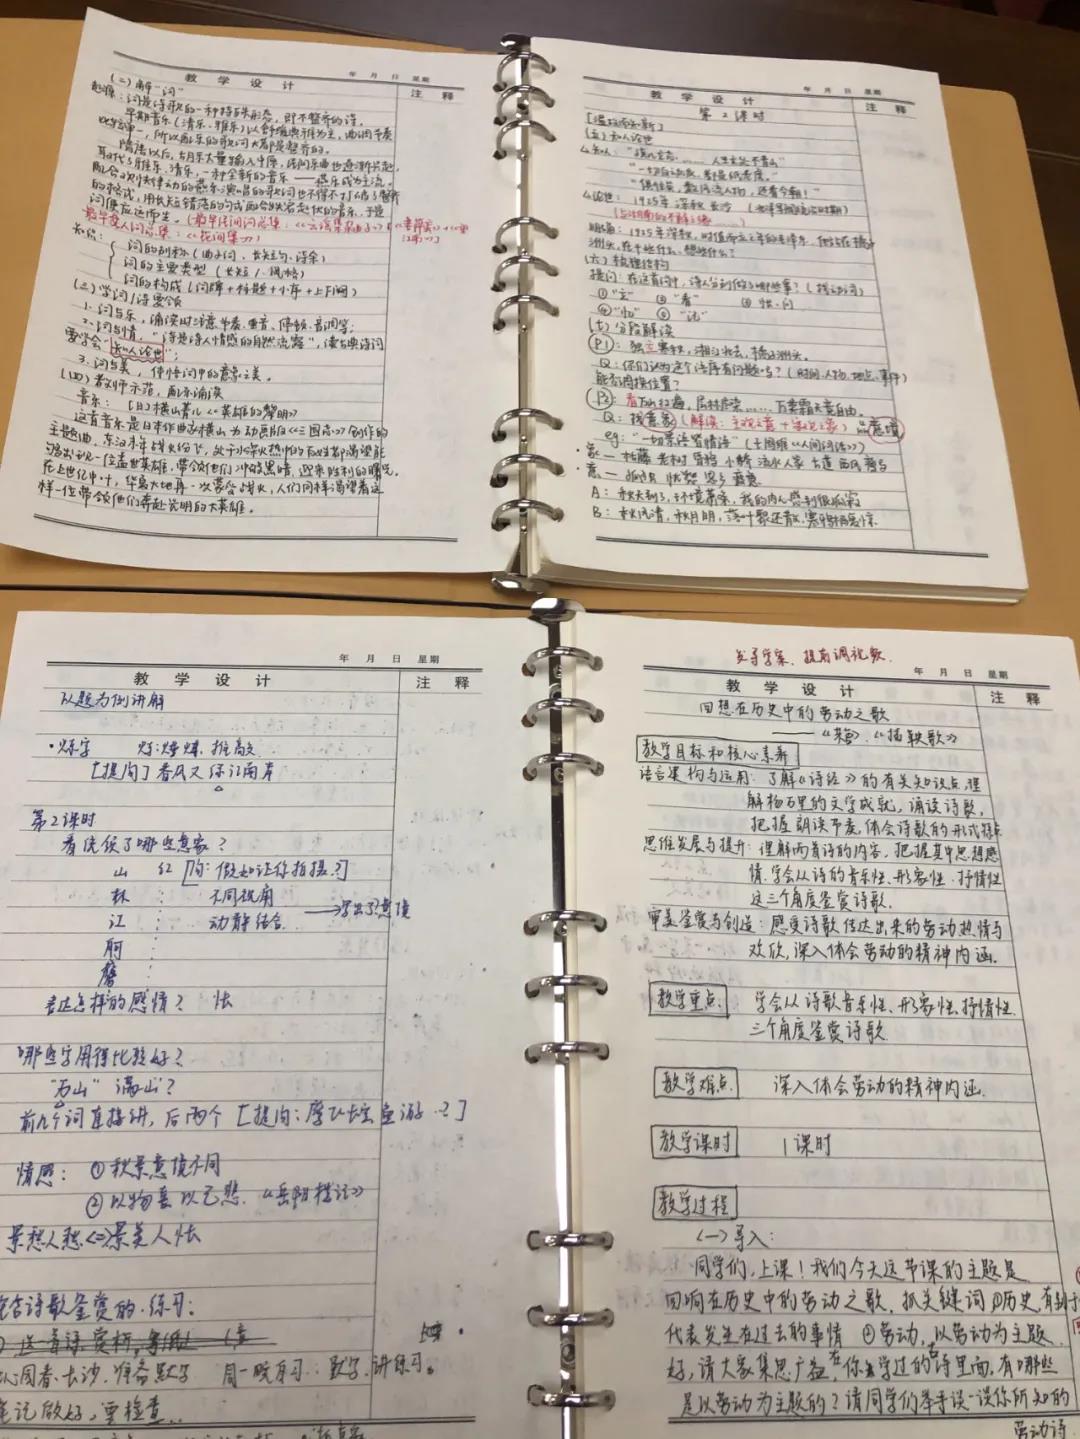 年 月 日 星期
教 学 设 计
注 释
(二)解“词”
起源:词是诗歌的一种特殊形态,即不整齐的诗。
早期音乐(清乐、雅乐)以舒缓典雅为主,曲调节奏
比较单一,所以配乐的歌词大都是整齐的。
隋唐以后,胡乐大量输入中原,民间乐曲也逐渐兴起,
配合这则快律动的燕乐演唱的歌词也不得不打破了整齐
的格式,用长短错落的句式配合跌宕起伏的音乐,于是
词便应运而生。
最早文人词总集:《花间集》
知识:
词的别称(曲子词、长短句、诗余)
词的主要类型(长短/风格)
词的构成(词牌+标题+小序+上下阕)
(三)学词/诗要领
1.词与乐,诵读时注意节奏、重音、停顿、音调等;
2.词与情,“诗是诗人情感的自然流露”,读古典诗词
要学会“知人论世”;
3.词与美,体悟词中的意象之美。
(四)教师示范,配乐诵读
音乐:[日]横山菁儿《英雄的黎明》
这首音乐是日本作曲家横山为动画版《三国志》创作的
主题曲,东汉末年战火纷飞,处于水深火热中的百姓都渴望能
够出现一位盖世英雄,带领他们冲破黑暗,迎来胜利的曙光。
在上世纪中叶,华夏大地再一次蒙含战火,人们同样渴望着这
样一位带领他们奔赴光明的大英雄。
年 月 日 星期
教 学 设 计
注 释
第2课时
[温故而知新]
(五)知人论世
“俱往矣,数风流人物,还看今朝!”
论世:1925年 深秋 长沙
明确:1925年深秋,
(六)梳理结构
提问:在这首词中,诗人分别做了哪些事?(找动词)
①“立” ②“看” ③ 怅·问
④“忆” ⑤“记”
(七)分段解读
P1:独立寒秋,湘江北去,橘子洲头。
Q:你们认为这个语序有问题吗?(时间、人物、地点、事件)
能否调换位置?
P2:看万山红遍,层林尽染……万类霜天竞自由。
Q:找意象(解读:主观之意+客观之象)品意境
eg:“一切景语皆情语”(王国维《人间词话》)
象—枯藤 老树 昏鸦 小桥 流水人家 古道 西风 瘦马
A:秋天到了,环境萧索,我的内心感到很孤寂
B:秋风清,秋月明,落叶聚还散,寒鸦栖复惊
年 月 日 星期
教 学 设 计
注 释
以题为例讲解
·炼字
[提问]春风又绿江南岸
第2课时
看 统领了哪些意象?
山 红 [问:假如让你拍摄?]
林 不同视角
江 动静结合 →写出了意境
舸
鹰
表达怎样的感情? 怅
哪些字用得比较好?
“万山” “满山”?
前几个词直接讲,后两个
情感:①秋景意境不同
②以物喜 以己悲.《岳阳楼记》
景愁人愁<=>景美人怅
诗歌鉴赏的练习:
沁园春·长沙 准备默写 周一晚自习:默写,讲练习。
笔记做好,要检查..
发导学案、提前调视频.
年 月 日 星期
教 学 设 计
注 释
回想在历史中的劳动之歌
——《芣苢》.《插秧歌》
教学目标和核心素养
语言建构与运用:了解《诗经》的有关知识点,理
解杨万里的文学成就,诵读诗歌,
把握朗读节奏,体会诗歌的形式特点
思维发展与提升:理解两首诗的内容,把握其中思想感
情,学会从诗的音乐性、形象性、抒情性
这三个角度鉴赏诗歌.
审美鉴赏与创造:感受诗歌传达出来的劳动热情与
欢欣,深入体会劳动的精神内涵.
教学重点 学会从诗歌音乐性、形象性、抒情性.
三个角度鉴赏诗歌
教学难点 深入体会劳动的精神内涵.
教学课时 1课时
教学过程
(一)导入:
同学们,上课!我们今天这节课的主题是
回响在历史中的劳动之歌.抓关键词 ①历史,
代表发生在过去的事情 ②劳动,以劳动为主题.
好,请大家集思广益,在你学过的古诗里面,有哪些
是以劳动为主题的?请同学们举手谈一谈你所知的
劳动诗.